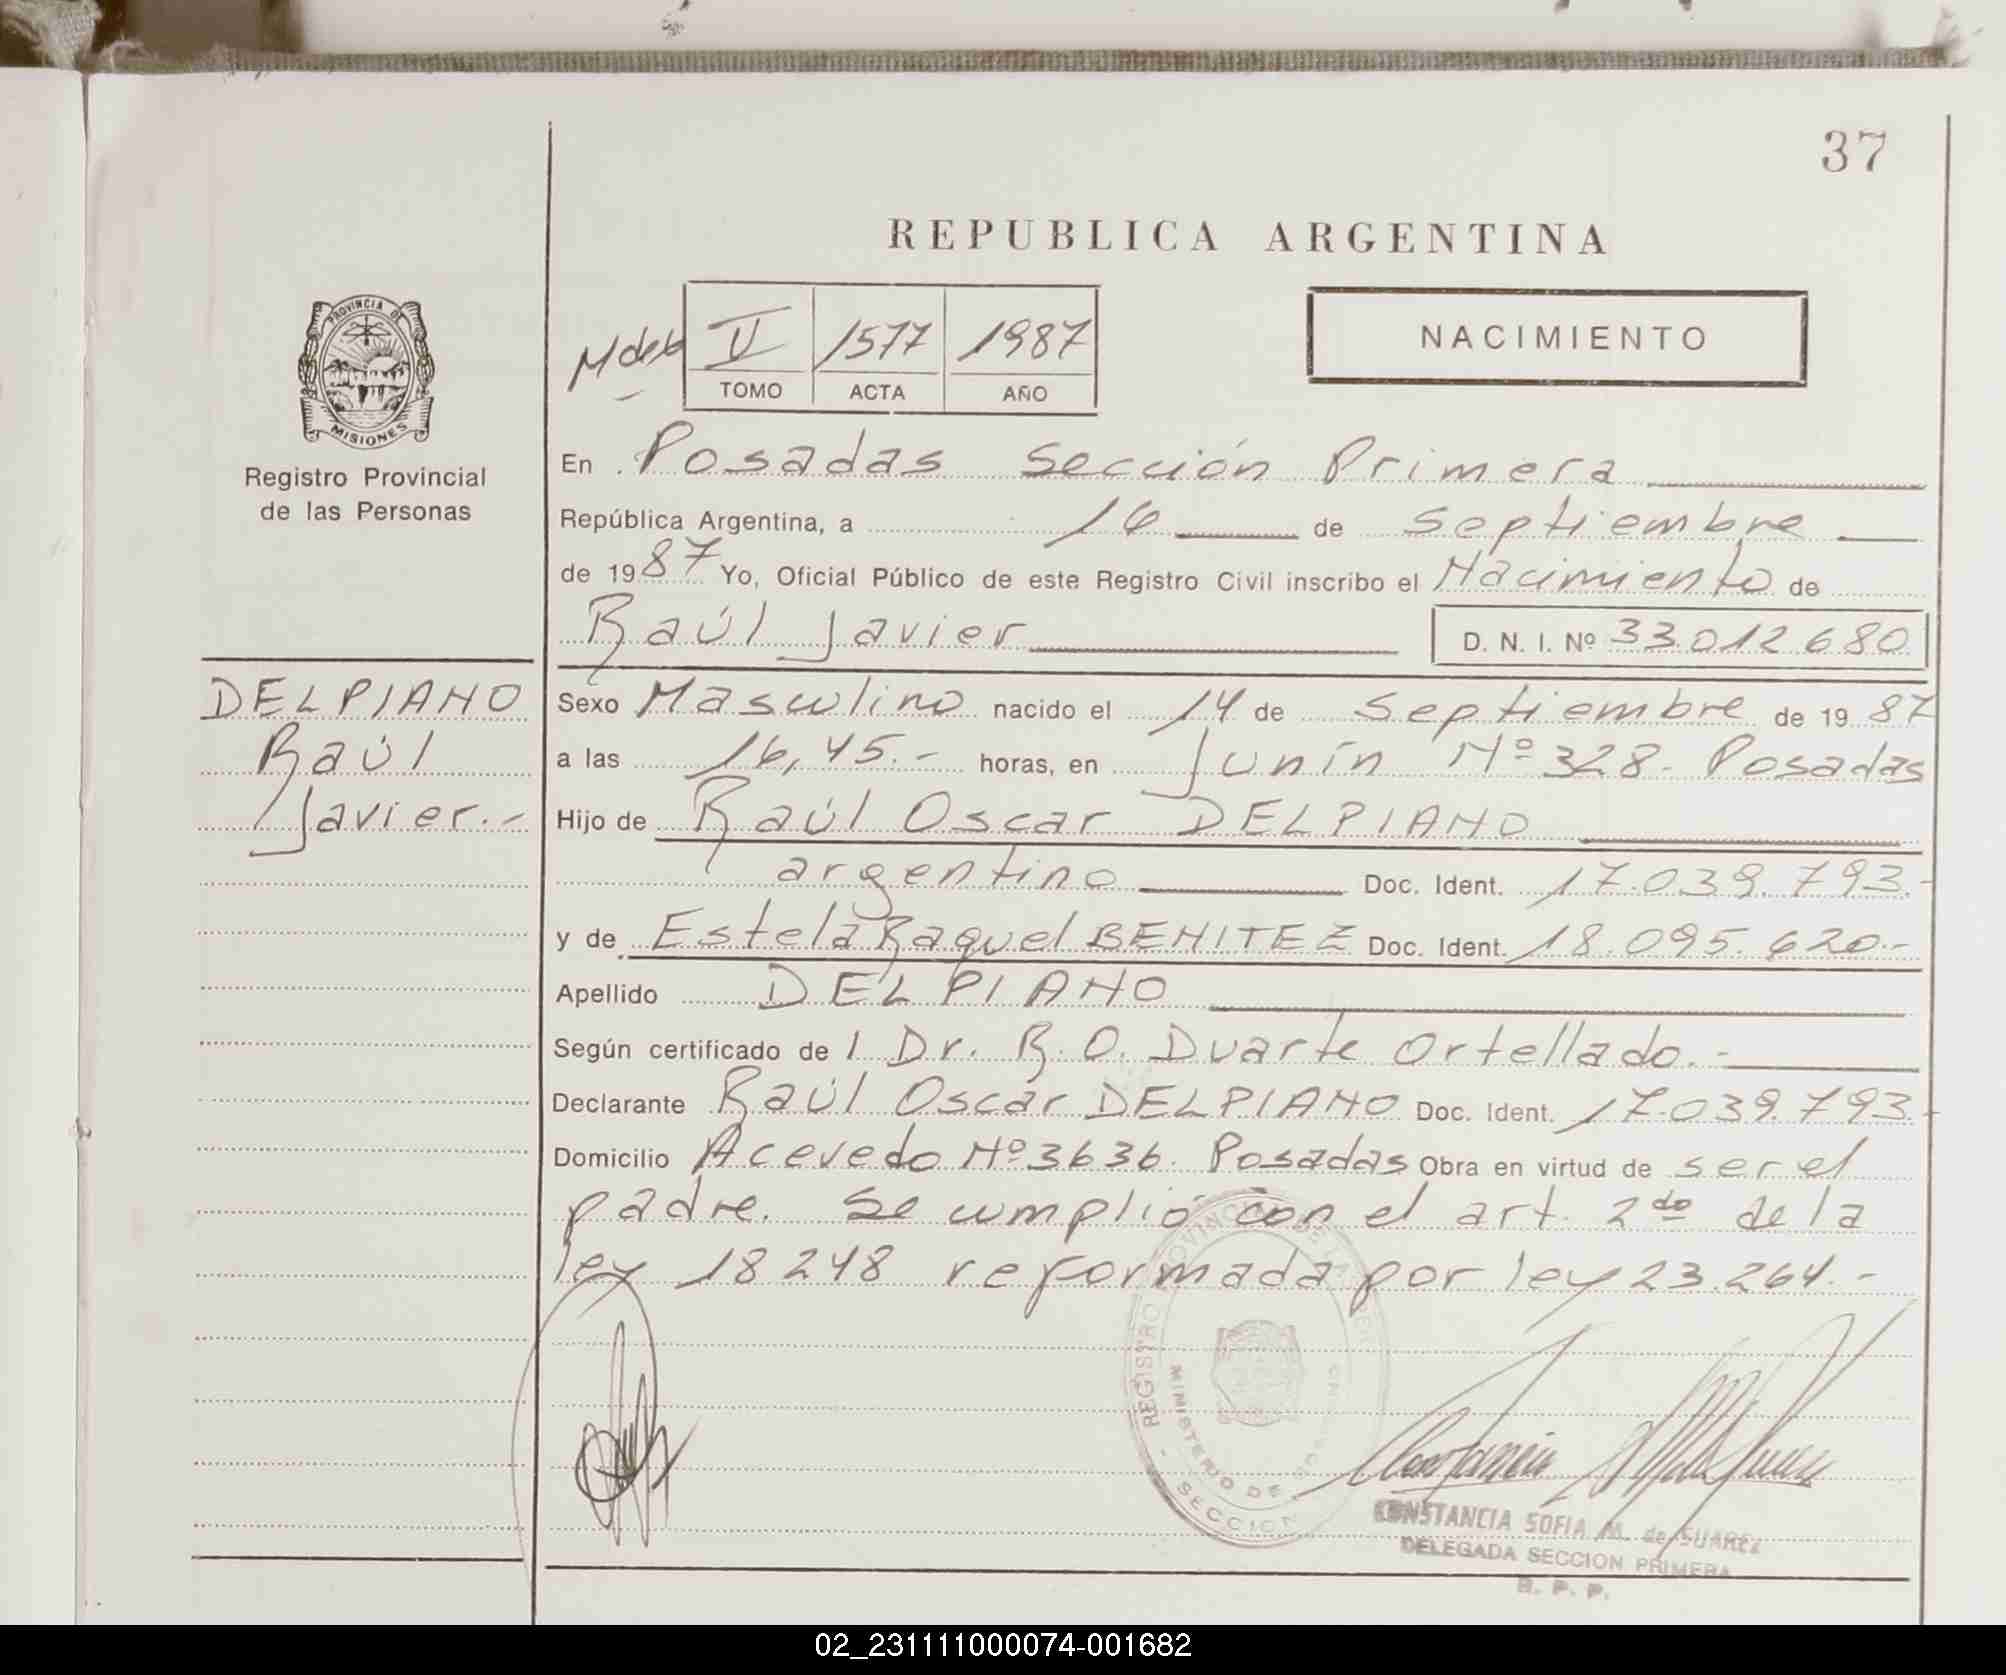 37
REPUBLICA ARGENTINA
PROVINCIA DE
MISIONES
Registro Provincial
de las Personas
II 1577 1987
TOMO ACTA AÑO
NACIMIENTO
En Posadas Sección Primera
República Argentina, a 16 de Septiembre
de 1987 Yo, Oficial Público de este Registro Civil inscribo el Nacimiento de
Raúl Javier D. N. I. Nº 33.012.680
DELPIANO
Raúl
Javier.-
Sexo Masculino nacido el 14 de Septiembre de 1987
a las 16,45.- horas, en Junín Nº 328. Posadas
Hijo de Raúl Oscar DELPIANO
argentino Doc. Ident. 17.039.793.-
y de Estela Raquel BENITEZ Doc. Ident. 18.095.620.-
Apellido DELPIANO
Según certificado de l Dr. R. O. Duarte Ortellado.-
Declarante Raúl Oscar DELPIANO Doc. Ident. 17.039.793.-
Domicilio Acevedo Nº 3636. Posadas Obra en virtud de ser el
padre. Se cumplió con el art. 2do de la
ley 18248 reformada por ley 23.264.-
REGISTRO PROVINCIAL DE LAS
MINISTERIO DE
SECCION
CONSTANCIA SOFIA M. de SUAREZ
DELEGADA SECCION PRIMERA
R. P. P.
02_231111000074-001682